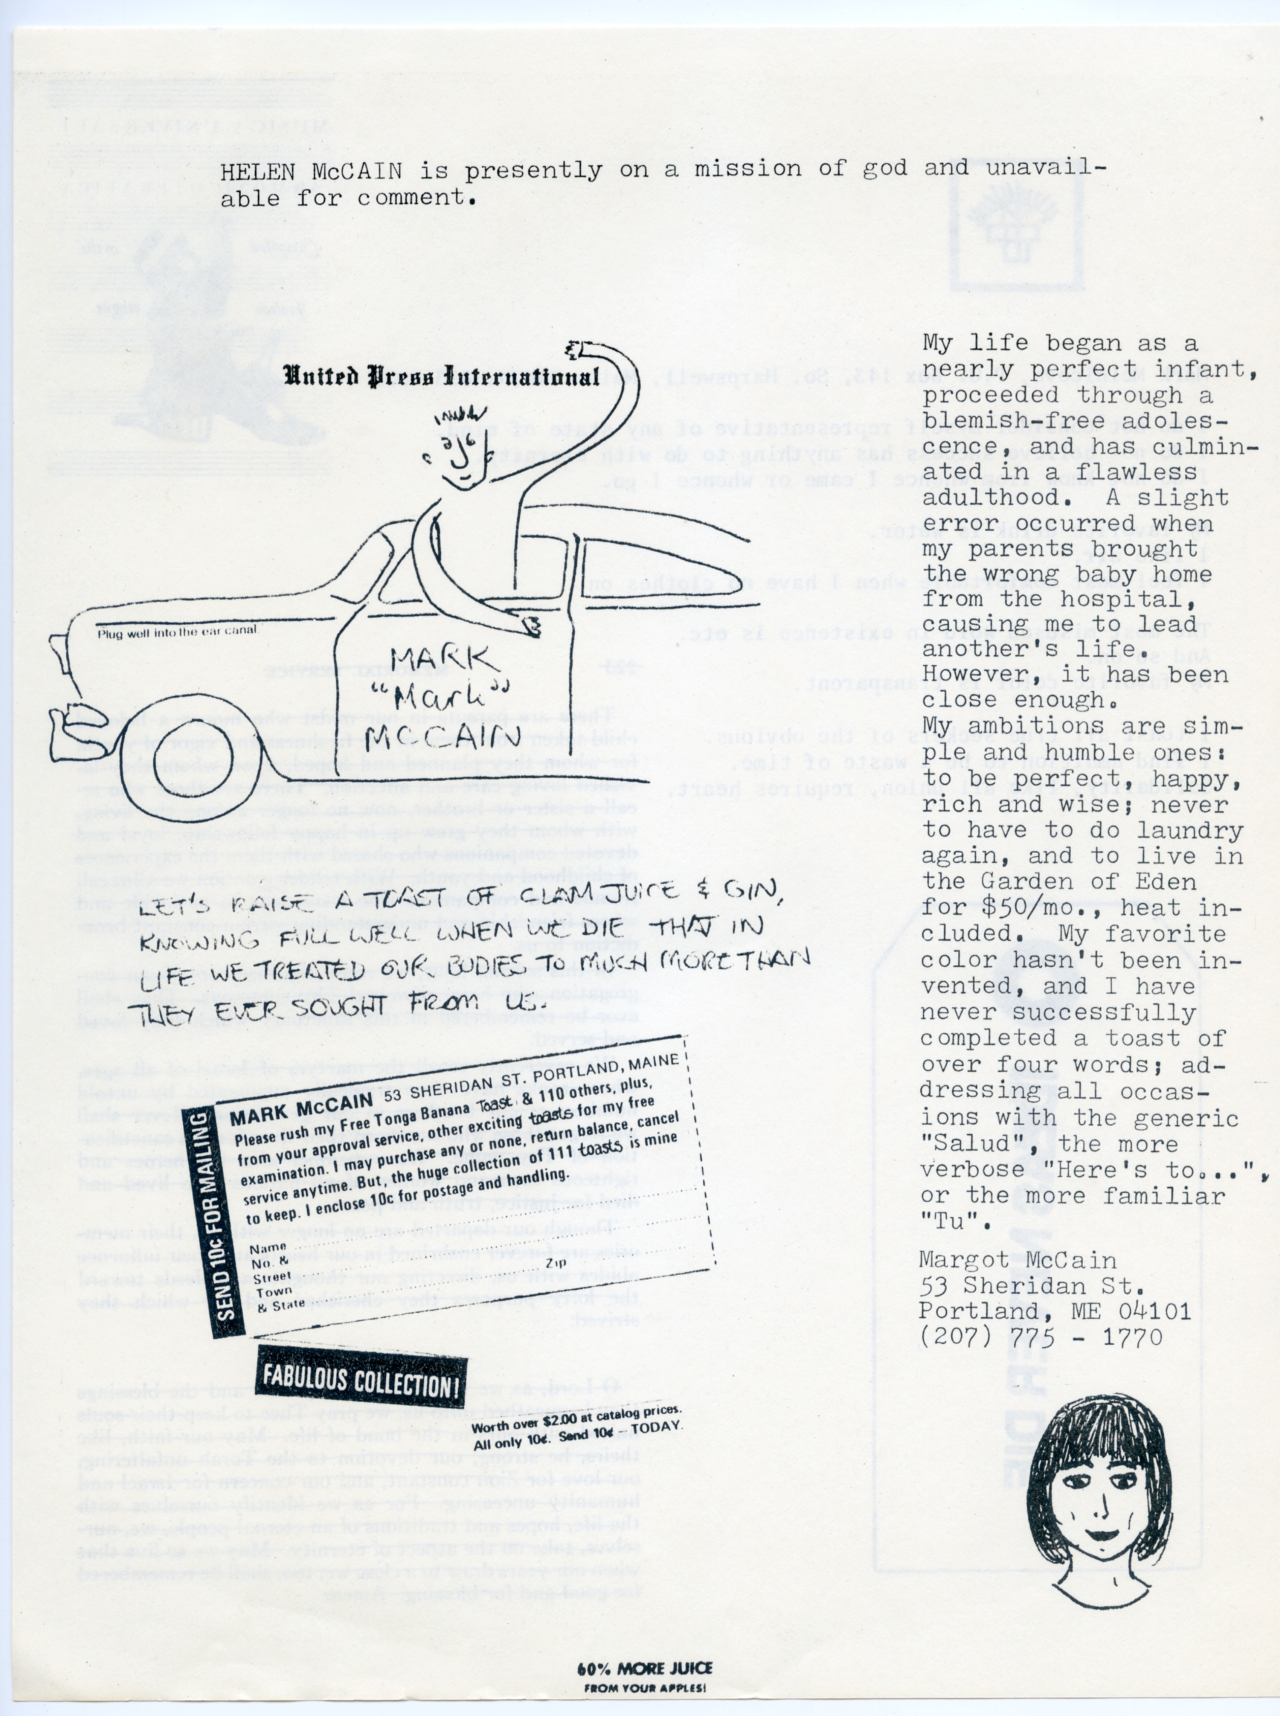 HELEN McCAIN is presently on a mission of god and unavail-
able for comment.
United Press International
"Plug well into the ear canal."
MARK
"Mark"
MCCAIN
LET'S RAISE A TOAST OF CLAM JUICE & GIN,
KNOWING FULL WELL WHEN WE DIE THAT IN
LIFE WE TREATED OUR BODIES TO MUCH MORE THAN
THEY EVER SOUGHT FROM US.
SEND 10¢ FOR MAILING
MARK McCAIN 53 SHERIDAN ST. PORTLAND, MAINE
Please rush my Free Tonga Banana Toast & 110 others, plus,
from your approval service, other exciting toasts for my free
examination. I may purchase any or none, return balance, cancel
service anytime. But, the huge collection of 111 toasts is mine
to keep. I enclose 10c for postage and handling.
Name
No. &
Street
Town
& State
Zip
FABULOUS COLLECTION!
Worth over $2.00 at catalog prices.
All only 10¢. Send 10¢ — TODAY.
My life began as a
nearly perfect infant,
proceeded through a
blemish-free adoles-
cence, and has culmin-
ated in a flawless
adulthood. A slight
error occurred when
my parents brought
the wrong baby home
from the hospital,
causing me to lead
another's life.
However, it has been
close enough.
My ambitions are sim-
ple and humble ones:
to be perfect, happy,
rich and wise; never
to have to do laundry
again, and to live in
the Garden of Eden
for $50/mo., heat in-
cluded. My favorite
color hasn't been in-
vented, and I have
never successfully
completed a toast of
over four words; ad-
dressing all occas-
ions with the generic
"Salud", the more
verbose "Here's to...",
or the more familiar
"Tu".
Margot McCain
53 Sheridan St.
Portland, ME 04101
(207) 775 - 1770
60% MORE JUICE
FROM YOUR APPLES!